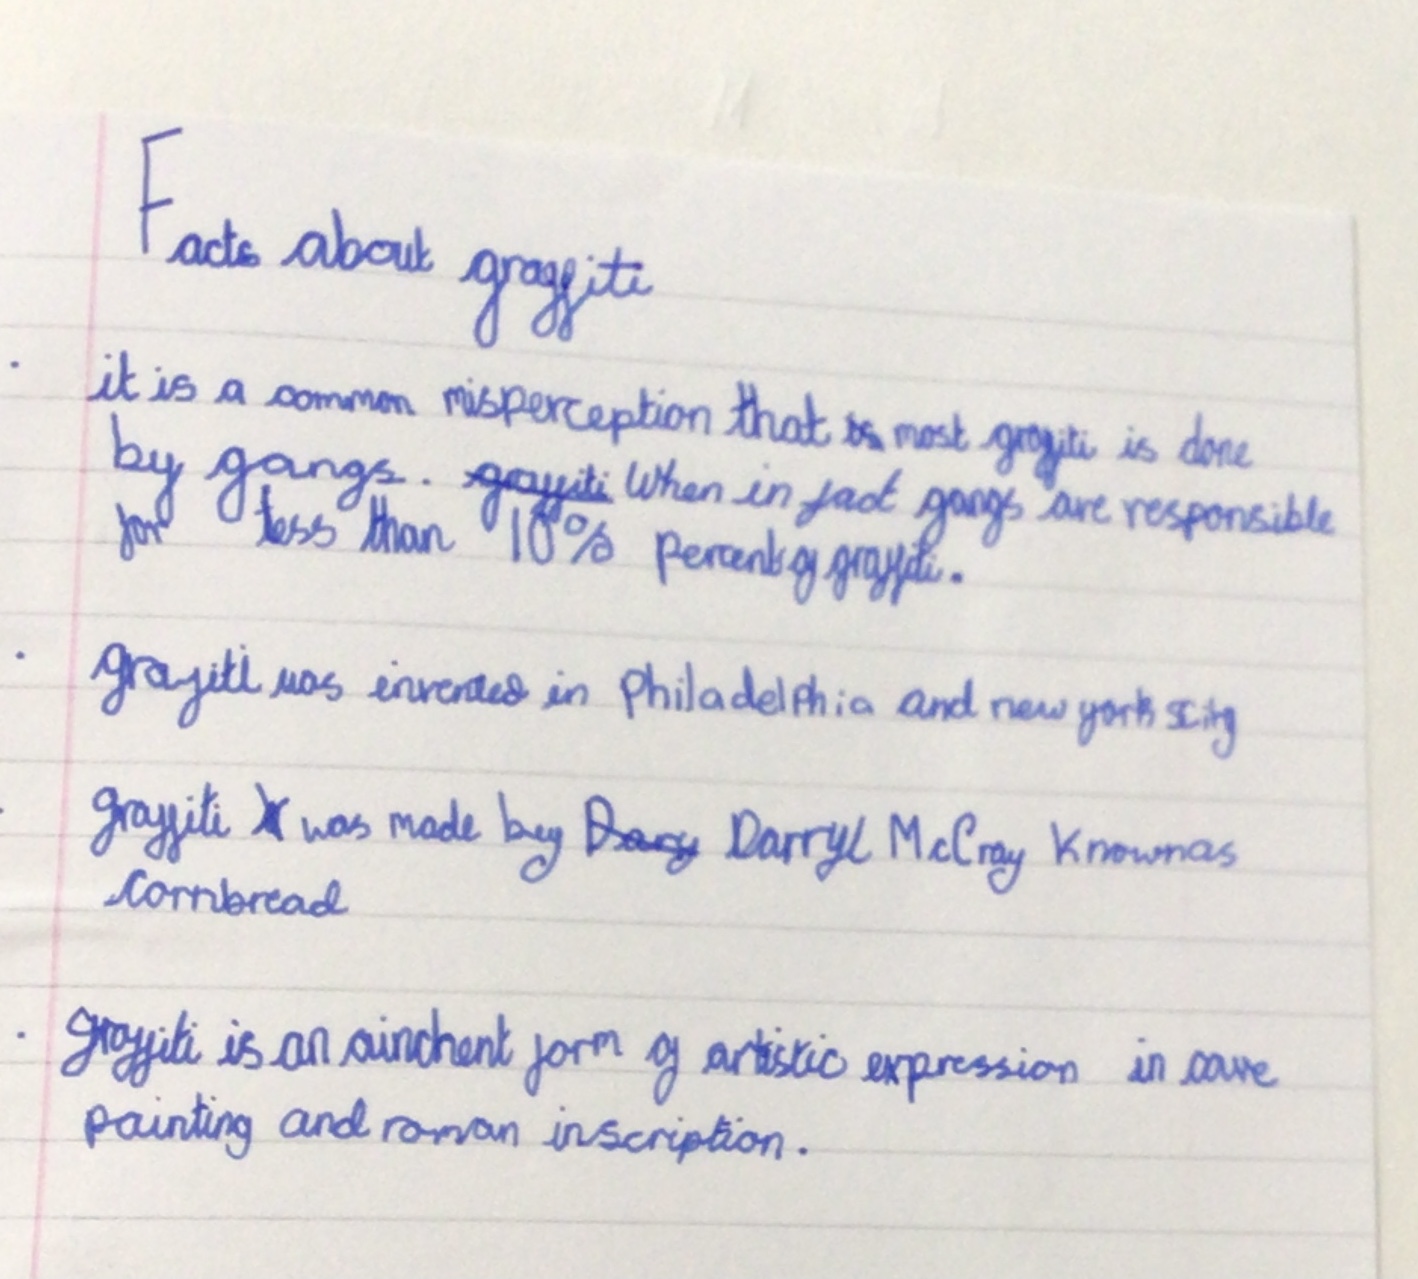 Facts about graffiti
· it is a common misperception that is most graffiti is done
by gangs. graffiti When in fact gangs are responsible
for less than 10% percent of graffiti.
· grafiti was invented in Philadelphia and new york city
· graffiti was made by Darryl McCray Known as
cornbread
· graffiti is an ainchent form of artistic expression in cave
painting and roman inscription.